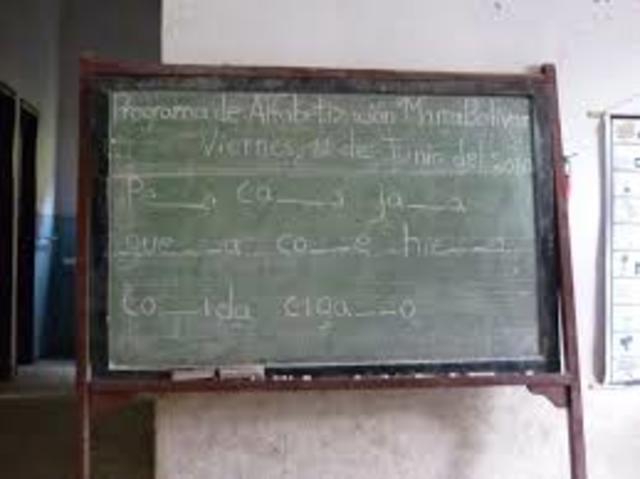 Programa de Alfabetización Marta Bolívar
Viernes, 11 de Junio del 2010
Pe___a ca___a ja___a
gue___a co___e hie___a
Co___ida ciga___o